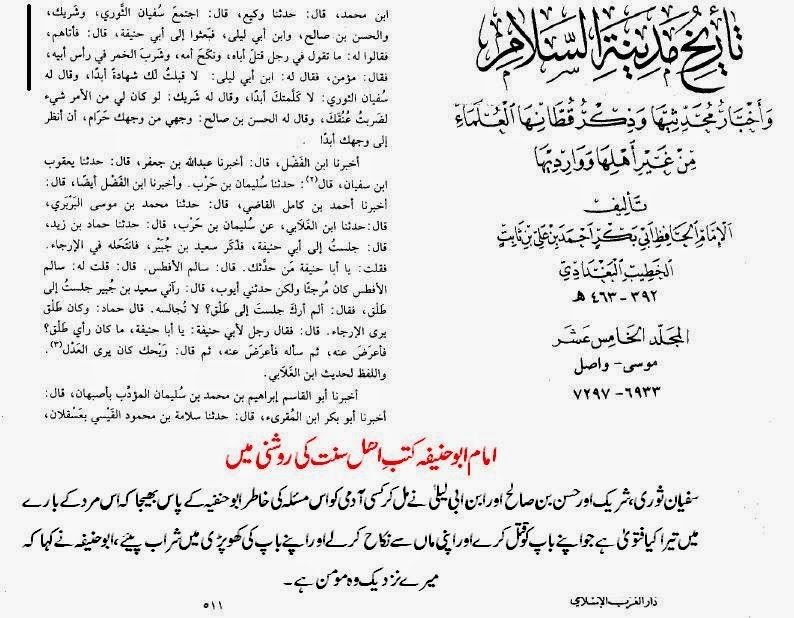 تاريخ مدينة السلام
وأخبار محدثيها وذكر قطانها العلماء
من غير أهلها ووارديها
تأليف
الإمام الحافظ أبي بكر أحمد بن علي بن ثابت
الخطيب البغدادي
٣٩٢ - ٤٦٣ هـ
المجلد الخامس عشر
موسى - واصل
٦٩٣٣ - ٧٢٩٧
ابن محمد، قال: حدثنا وكيع، قال: اجتمعَ سُفيان الثَّوري، وشَريك،
والحسن بن صالح، وابن أبي ليلى، فبَعثوا إلى أبي حنيفة، قال: فأتاهم،
فقالوا له: ما تقول في رجل قتلَ أباه، ونكَحَ أمه، وشَربَ الخمر في رأس أبيه،
فقال: مؤمن، فقال له: ابن أبي ليلى: لا قَبلتُ لك شهادةً أبدًا، وقال له
سُفيان الثوري: لا كَلَّمتكَ أبدًا، وقال له شَريك: لو كان لي من الأمر شيء
لضربتُ عُنقَكَ، وقال له الحسن بن صالح: وجهي من وجهك حَرَام، أن أنظر
إلى وجهك أبدًا .
أخبرنا ابن الفَضْل، قال: أخبرنا عبدالله بن جعفر، قال: حدثنا يعقوب
ابن سفيان، قال(٢): حدثنا سُليمان بن حَرْب. وأخبرنا ابن الفَضْل أيضًا، قال:
أخبرنا أحمد بن كامل القاضي، قال: حدثنا محمد بن موسى البَرْبَري،
قال: حدثنا ابن الغَلَابي، عن سُليمان بن حَرْب، قال: حدثنا حماد بن زيد،
قال: جلستُ إلى أبي حنيفة، فذكَر سعيد بن جُبَيْر، فانتَحَله في الإرجاء.
فقلت: يا أبا حنيفة مَن حدَّثك. قال: سالم الأفطس. قال: قلت له: سالم
الأفطس كان مُرجئًا ولكن حدثني أيوب، قال: رآني سعيد بن جُبير جلستُ إلى
طَلْق، فقال: ألم أركَ جلستَ إلى طَلْق؟ لا تُجالسه. قال حماد: وكان طَلْق
يرى الإرجاء. قال: فقال رجل لأبي حنيفة: يا أبا حنيفة، ما كان رأي طَلْق؟
فأعرَضَ عنه، ثم سأله فأعرَضَ عنه، ثم قال: وَيْحك كان يرى العَدْل(٣).
واللفظ لحديث ابن الغَلَابي.
أخبرنا أبو القاسم إبراهيم بن محمد بن سُليمان المؤدِّب بأصبهان، قال:
أخبرنا أبو بكر ابن المُقرىء، قال: حدثنا سلامة بن محمود القَيْسي بعَسْقلان،
امام ابو حنیفہ کتب اھل سنت کی روشنی میں
سفیان ثوری، شریک اور حسن بن صالح اور ابن ابی لیلیٰ نے مل کر کسی آدمی کو اس مسئلہ کی خاطر ابو حنیفہ کے پاس بھیجا کہ اس مرد کے بارے
میں تیرا کیا فتویٰ ہے جو اپنے باپ کو قتل کرے اور اپنی ماں سے نکاح کرلے اور اپنے باپ کی کھوپڑی میں شراب پیئے، ابو حنیفہ نے کہا کہ
میرے نزدیک وہ مومن ہے۔
دار الغرب الإسلامي
٥١١